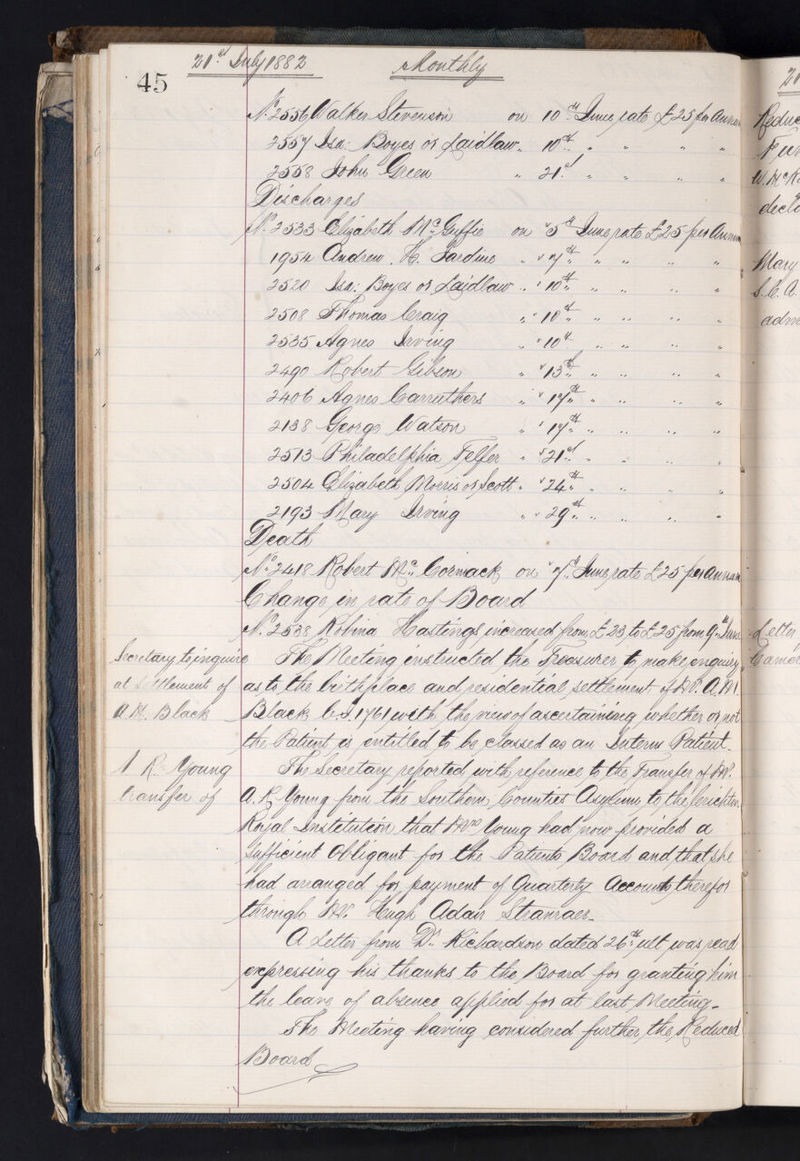 45
21st July 1882
Monthly
No. 2556 Walker Stevenson on 10th June rate £25 per Annum
2557 Isa: Boyes or Laidlaw " 10th " " " "
2558 John Green " 21st " " " "
Discharges
No. 2533 Elizabeth McGuffie on " 5th June rate £25 per Annum
1954 Andrew H. Jardine " " 7th " " " "
2520 Isa: Boyes or Laidlaw " " 10th " " " "
2508 Thomas Craig " " 10th " " " "
2535 Agnes Irving " " 10th " " " "
2490 Robert Gibson " " 13th " " " "
2406 Agnes Carruthers " " 17th " " " "
2138 George Watson " " 17th " " " "
2513 Philadelphia Telfer " " 21st " " " "
2504 Elizabeth Morris or Scott " " 24th " " " "
2193 Mary Irving " " 29th " " " "
Death
No. 2418 Robert McCormack on " 7th June rate £25 per Annum
Change in rate of Board
No. 2538 Robina Hastings increased from £23 to £25 from 9th June
Secretary to inquire
at settlement of
A. M. Black
The Meeting instructed the Treasurer to make enquiry
as to the birthplace and residential settlement of Mr. A. M.
Black C.I. 1761 with the view of ascertaining whether or not
the Patient is entitled to be classed as an Interm Patient.
A R. Young
transfer of
The Secretary reported with reference to the Transfer of Mr.
A. R. Young from the Southern Counties Asylum to the Crichton
Royal Institution that Mrs Young had now provided a
sufficient Obligant for the Patients Board and that she
had arranged for payment of Quarterly Accounts therefor
through Mr. Hugh Adair Stranraer.
A Letter from Dr. Richardson dated 26th ult was read
expressing his thanks to the Board for granting him
the leave of absence applied for at last Meeting.
The Meeting having considered further the Reduced
Board
Mary
Letter